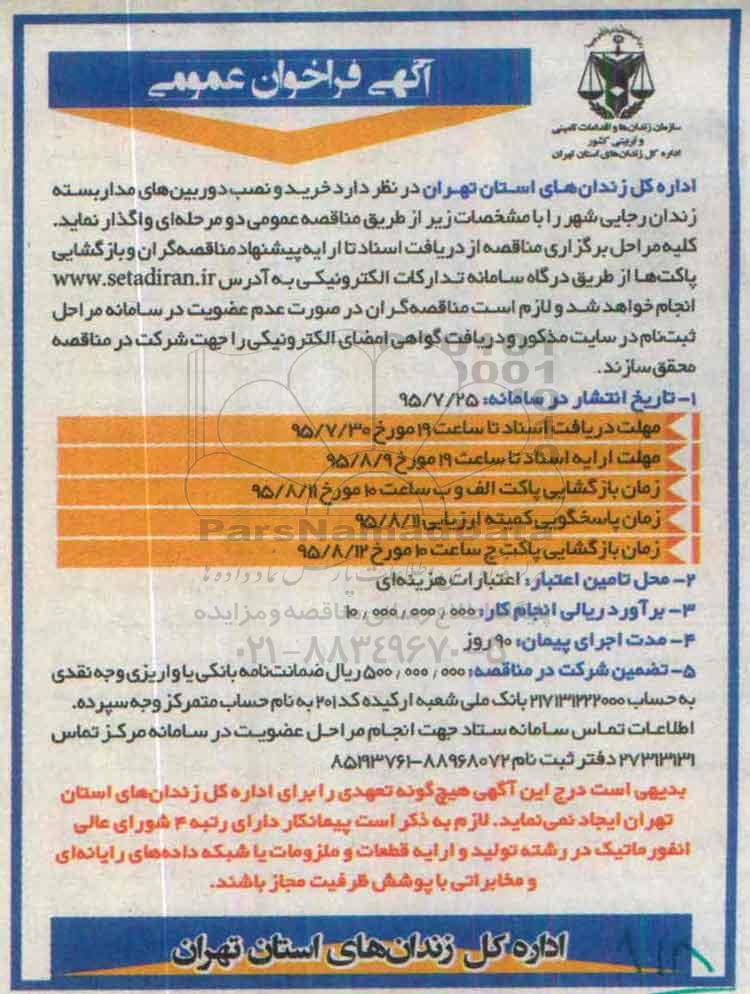 آگهی فراخوان عمومی
سازمان زندان‌ها و اقدامات تامینی
و تربیتی کشور
اداره کل زندان‌های استان تهران
اداره کل زندان‌های استان تهران در نظر دارد خرید و نصب دوربین‌های مداربسته
زندان رجایی شهر را با مشخصات زیر از طریق مناقصه عمومی دو مرحله‌ای واگذار نماید.
کلیه مراحل برگزاری مناقصه از دریافت اسناد تا ارایه پیشنهاد مناقصه‌گران و بازگشایی
پاکت‌ها از طریق درگاه سامانه تدارکات الکترونیکی به آدرس www.setadiran.ir
انجام خواهد شد و لازم است مناقصه‌گران در صورت عدم عضویت در سامانه مراحل
ثبت‌نام در سایت مذکور و دریافت گواهی امضای الکترونیکی را جهت شرکت در مناقصه
محقق سازند.
۱- تاریخ انتشار در سامانه: ۹۵/۷/۲۵
مهلت دریافت اسناد تا ساعت ۱۹ مورخ ۹۵/۷/۳۰
مهلت ارایه اسناد تا ساعت ۱۹ مورخ ۹۵/۸/۹
زمان بازگشایی پاکت الف و ب ساعت ۱۰ مورخ ۹۵/۸/۱۱
زمان پاسخگویی کمیته ارزیابی ۹۵/۸/۱۱
زمان بازگشایی پاکت ج ساعت ۱۰ مورخ ۹۵/۸/۱۲
ParsNamadData
۲- محل تامین اعتبار: اعتبارات هزینه‌ای
۳- برآورد ریالی انجام کار: ۱۰,۰۰۰,۰۰۰,۰۰۰
۴- مدت اجرای پیمان: ۹۰ روز
۰۲۱-۸۸۳۴۹۶۷۰-۵
۵- تضمین شرکت در مناقصه: ۵۰۰,۰۰۰,۰۰۰ ریال ضمانت‌نامه بانکی یا واریزی وجه نقدی
به حساب ۲۱۷۱۳۱۲۲۲۰۰۰ بانک ملی شعبه ارکیده کد ۲۰۱ به نام حساب متمرکز وجه سپرده.
اطلاعات تماس سامانه ستاد جهت انجام مراحل عضویت در سامانه مرکز تماس
۲۷۳۱۳۱۳۱ دفتر ثبت نام ۸۸۹۶۸۰۷۲-۸۵۱۹۳۷۶۱
بدیهی است درج این آگهی هیچ‌گونه تعهدی را برای اداره کل زندان‌های استان
تهران ایجاد نمی‌نماید. لازم به ذکر است پیمانکار دارای رتبه ۴ شورای عالی
انفورماتیک در رشته تولید و ارایه قطعات و ملزومات یا شبکه داده‌های رایانه‌ای
و مخابراتی با پوشش ظرفیت مجاز باشند.
اداره کل زندان‌های استان تهران